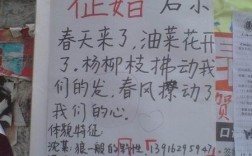 征婚 启示
春天来了,油菜花开
了.杨柳枝拂动我
们的发.春风撩动了
我们的心.
体貌特征
沈某:狼一般的野性